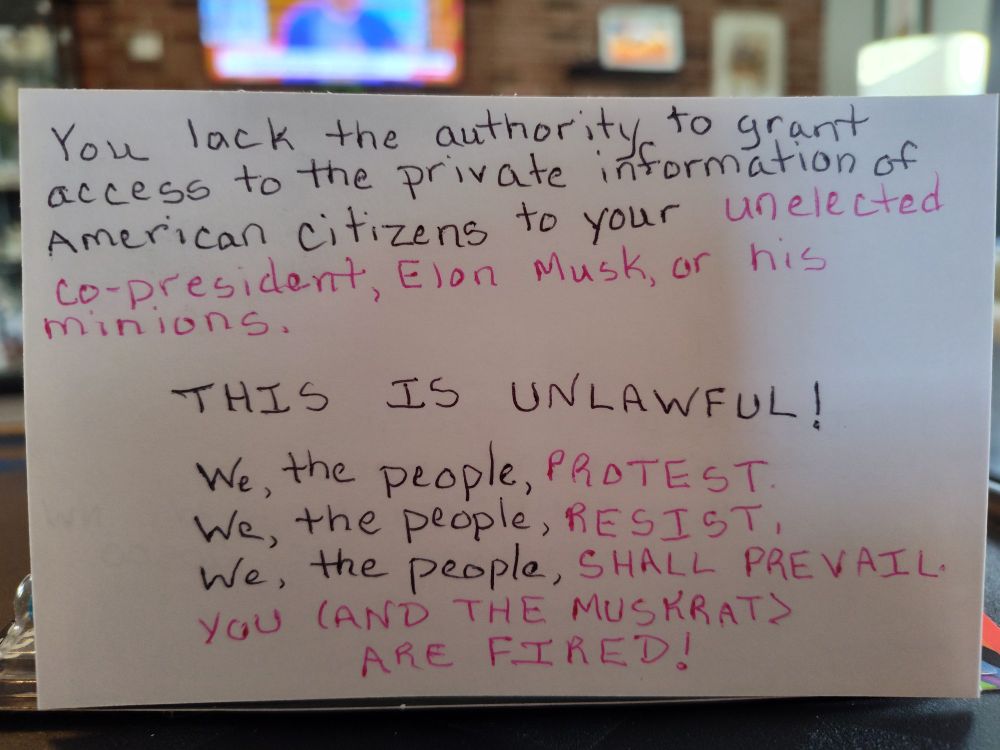 You lack the authority to grant
access to the private information of
American citizens to your unelected
co-president, Elon Musk, or his
minions.
THIS IS UNLAWFUL!
We, the people, PROTEST.
We, the people, RESIST.
We, the people, SHALL PREVAIL.
YOU (AND THE MUSKRAT)
ARE FIRED!